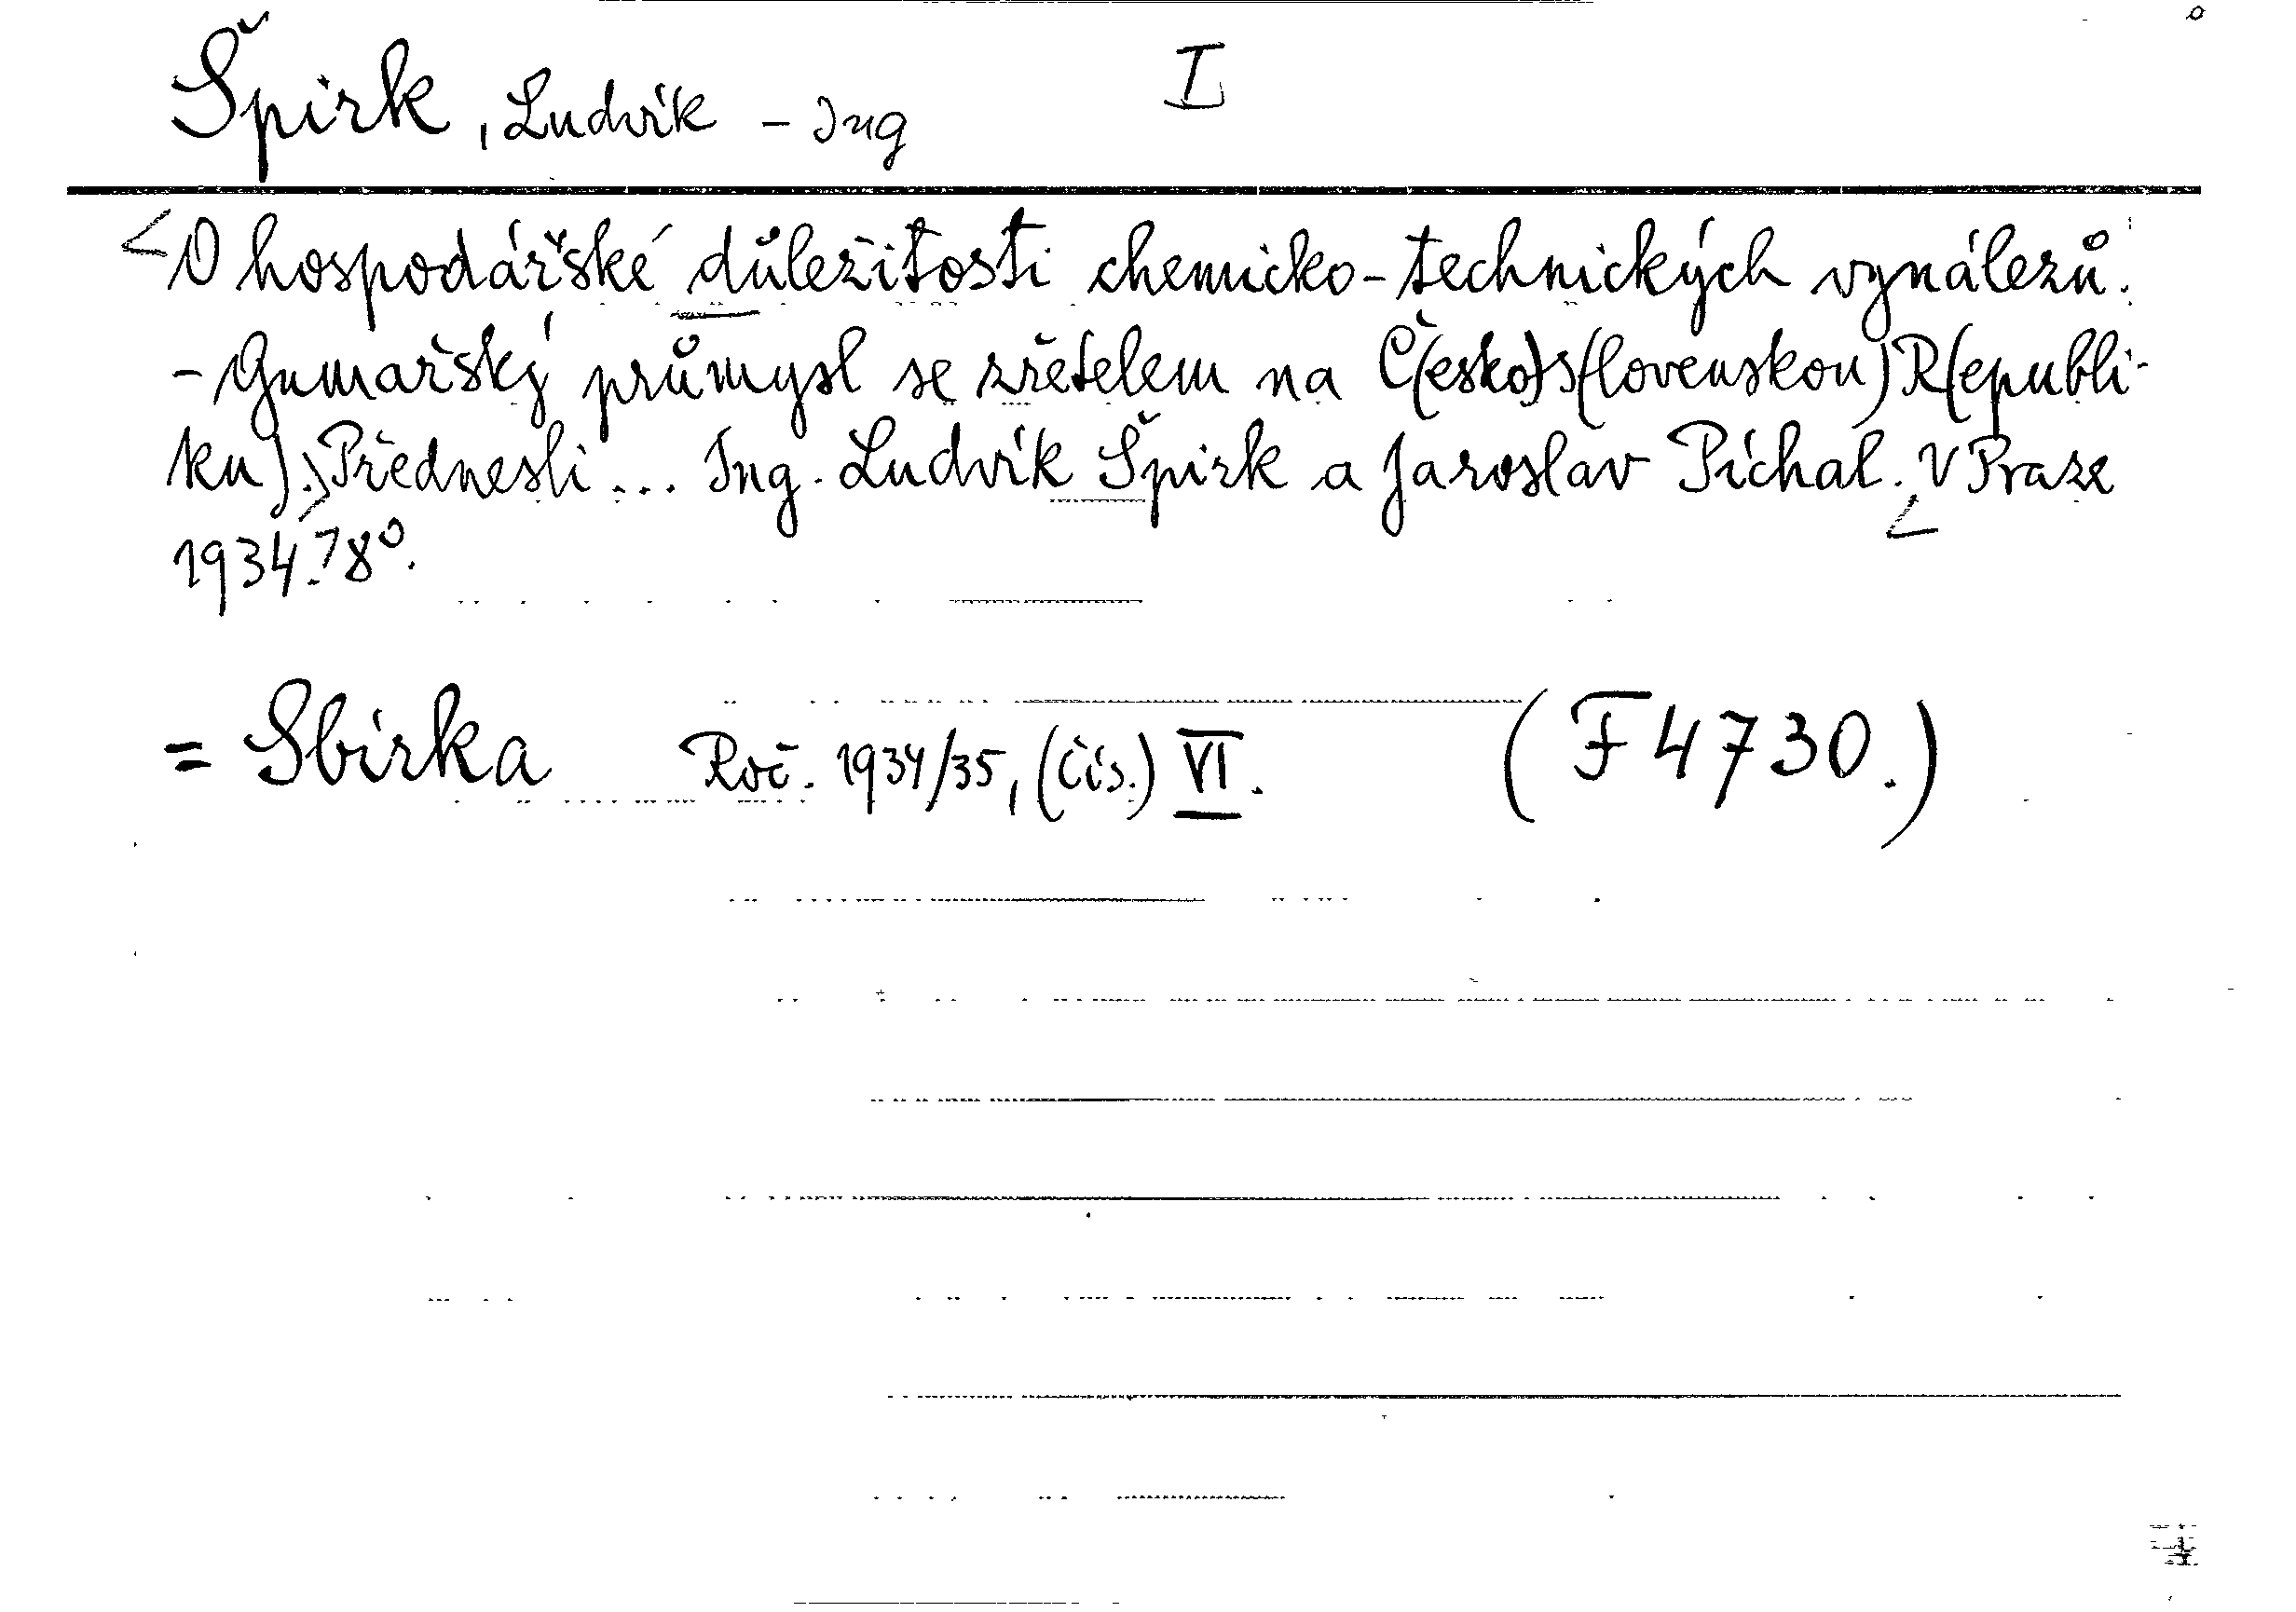 Špirk, Ludvík - Ing I
<O hospodářské důležitosti chemicko-technických vynálezů.
- Gumařský průmysl se zřetelem na Č(esko)s(lovenskou) R(epubli-
ku).> Přednesli ... Ing. Ludvík Špirk a Jaroslav Píchal. <V Praze
1934.> 8°.
= Sbírka Roč. 1934/35, (čís.) VI. (F 4730.)